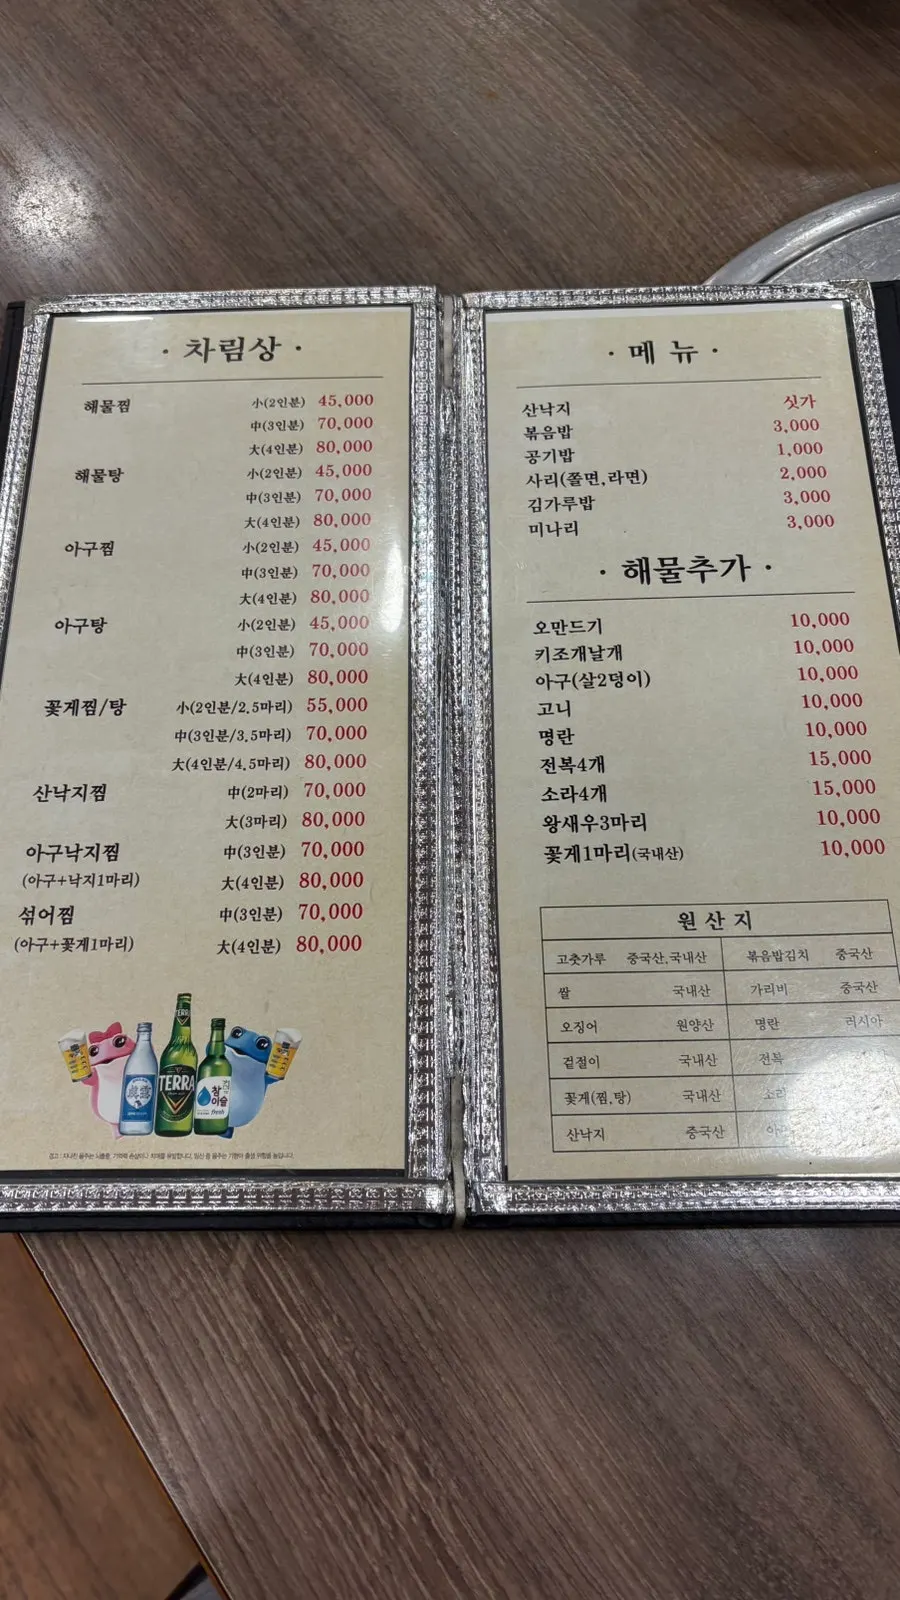 · 차림상 ·
해물찜 小(2인분) 45,000
中(3인분) 70,000
大(4인분) 80,000
해물탕 小(2인분) 45,000
中(3인분) 70,000
大(4인분) 80,000
아구찜 小(2인분) 45,000
中(3인분) 70,000
大(4인분) 80,000
아구탕 小(2인분) 45,000
中(3인분) 70,000
大(4인분) 80,000
꽃게찜/탕 小(2인분/2.5마리) 55,000
中(3인분/3.5마리) 70,000
大(4인분/4.5마리) 80,000
산낙지찜 中(2마리) 70,000
大(3마리) 80,000
아구낙지찜 中(3인분) 70,000
(아구+낙지1마리) 大(4인분) 80,000
섞어찜 中(3인분) 70,000
(아구+꽃게1마리) 大(4인분) 80,000
TERRA
TERRA
참이슬
fresh
· 메 뉴 ·
산낙지 싯가
볶음밥 3,000
공기밥 1,000
사리(쫄면,라면) 2,000
김가루밥 3,000
미나리 3,000
· 해물추가 ·
오만드기 10,000
키조개날개 10,000
아구(살2덩이) 10,000
고니 10,000
명란 10,000
전복4개 15,000
소라4개 15,000
왕새우3마리 10,000
꽃게1마리(국내산) 10,000
원 산 지
고춧가루 중국산,국내산 볶음밥김치 중국산
쌀 국내산 가리비 중국산
오징어 원양산 명란 러시아
겉절이 국내산 전복
꽃게(찜,탕) 국내산 소라
산낙지 중국산